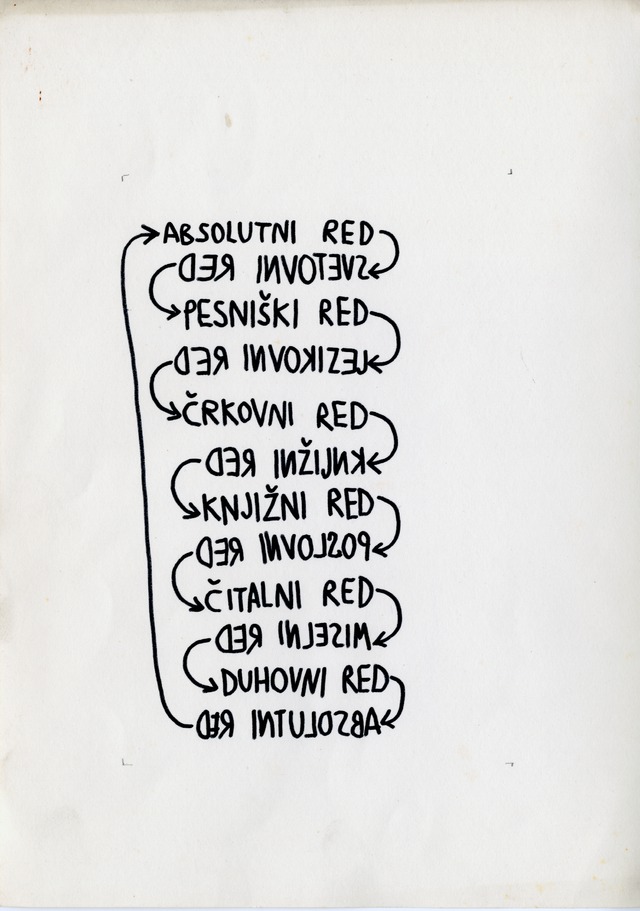 ABSOLUTNI RED
SVETOVNI RED
PESNIŠKI RED
JEZIKOVNI RED
ČRKOVNI RED
KNJIŽNI RED
KNJIŽNI RED
POSLOVNI RED
ČITALNI RED
MISELNI RED
DUHOVNI RED
ABSOLUTNI RED